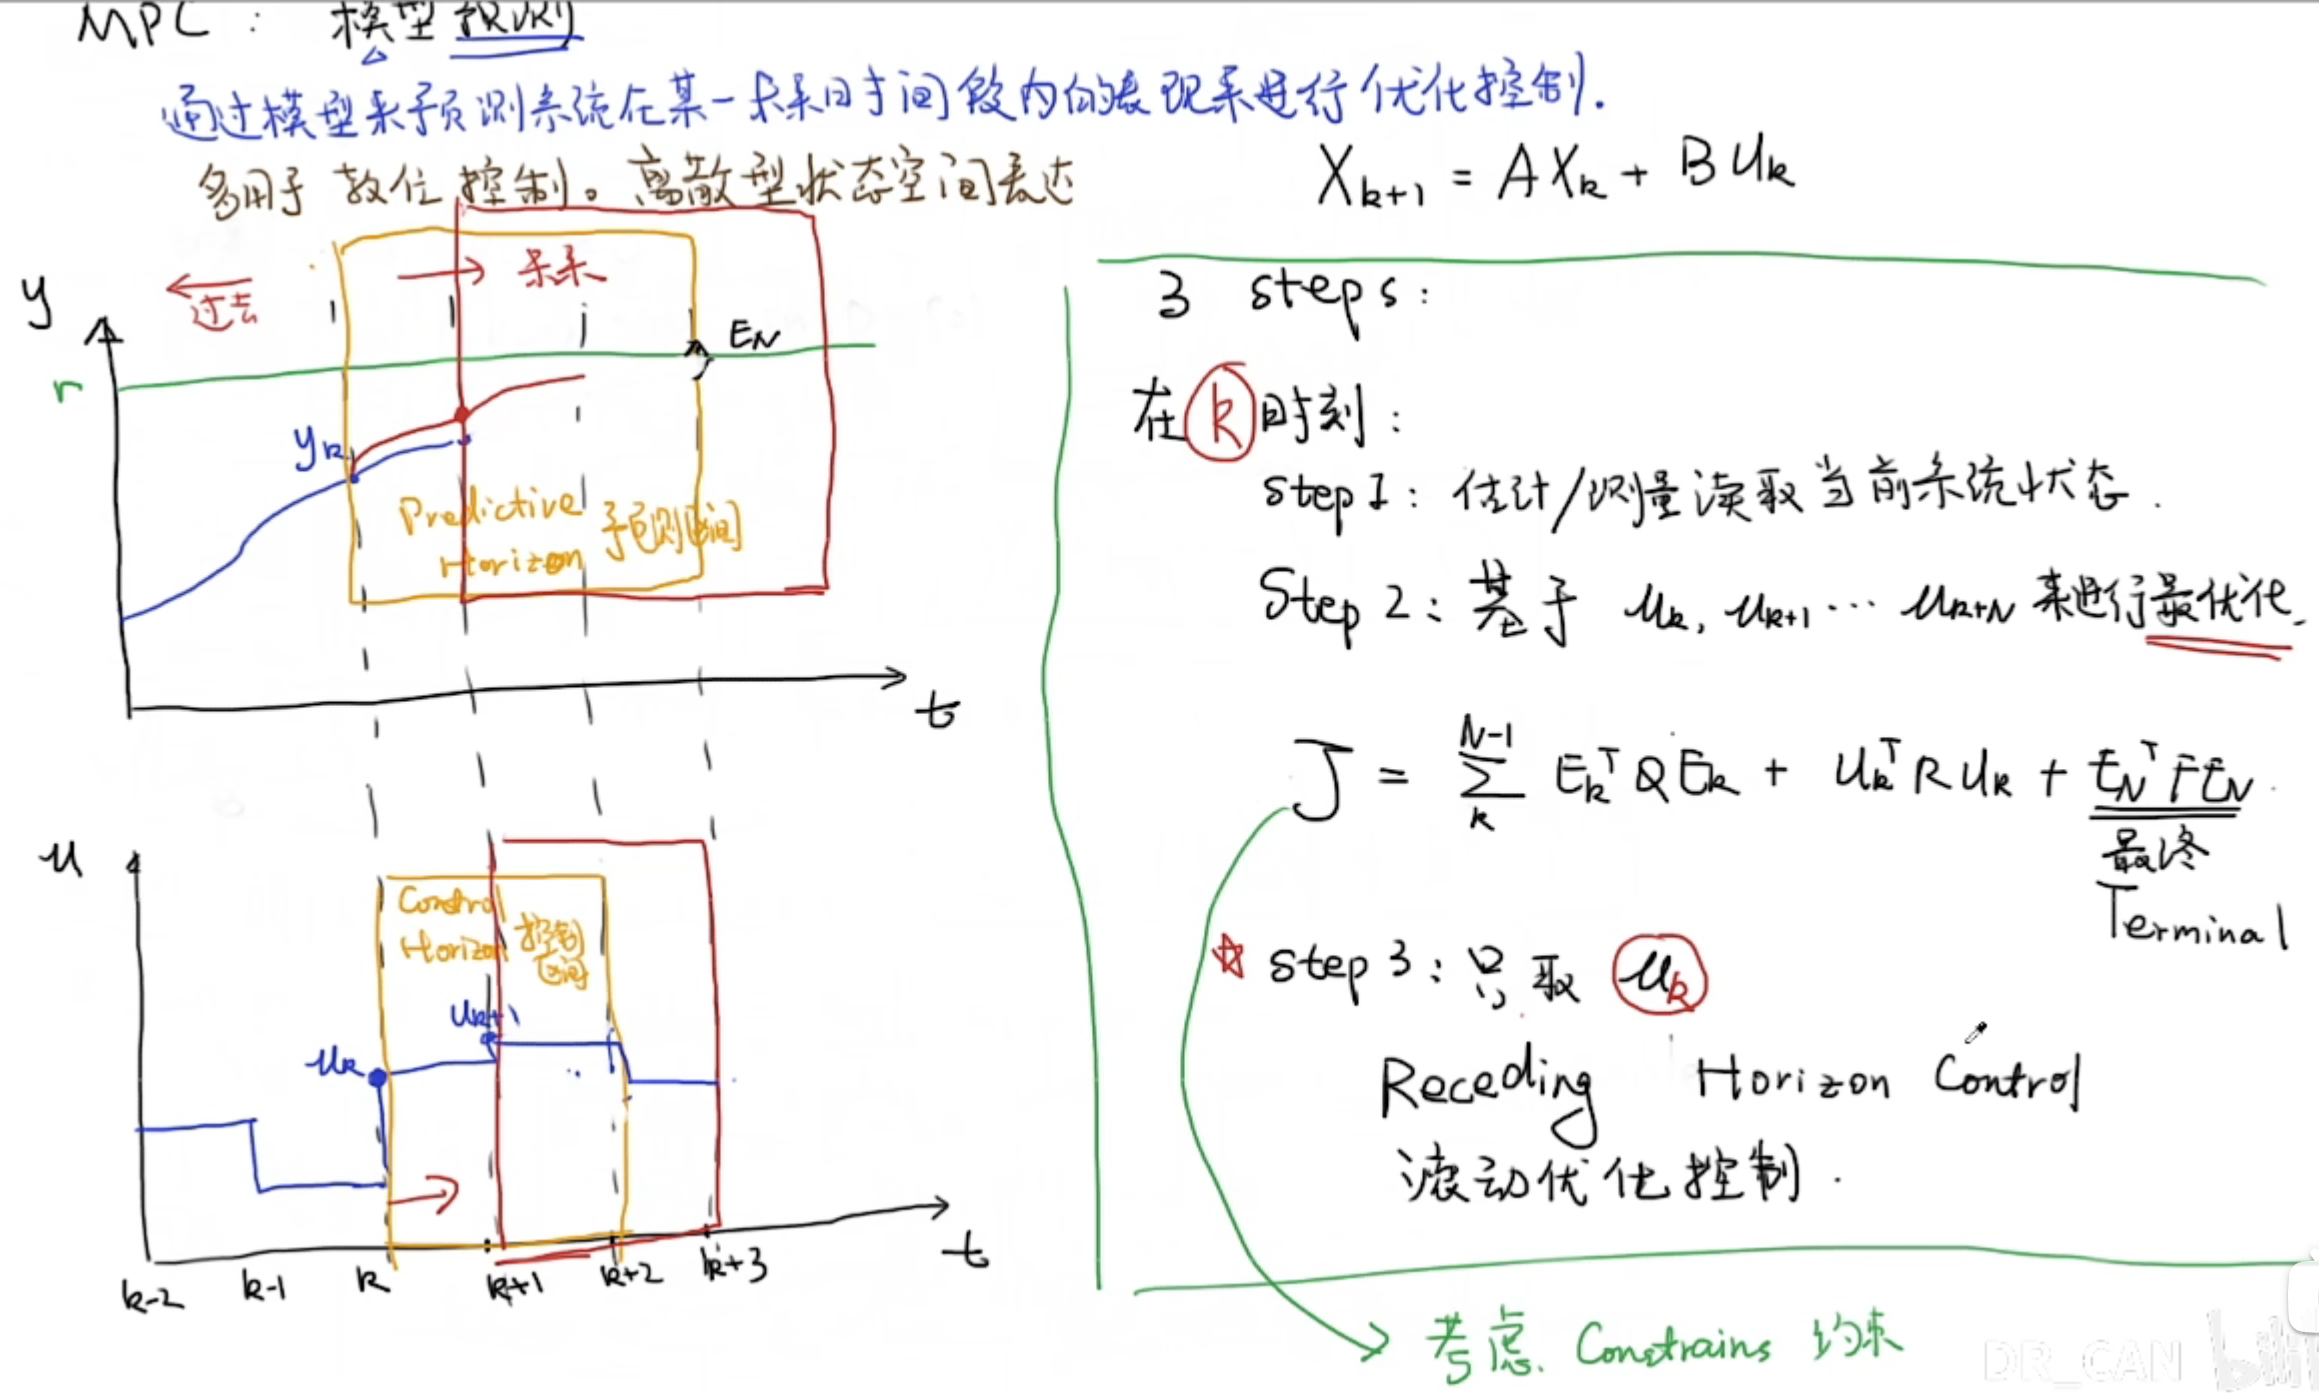 MPC : 模型预测
通过模型来预测系统在某一未来时间段内的表现来进行优化控制.
多用于 数位控制。离散型状态空间表达
X_{k+1} = A X_k + B u_k
过去
未来
y
r
E_N
y_k
Predictive
Horizon
预测区间
t
u
Control
Horizon
控制
区间
u_{k+1}
u_k
t
k-2 k-1 k k+1 k+2 k+3
3 steps:
在 k 时刻:
step 1: 估计/测量读取当前系统状态.
Step 2: 基于 u_k, u_{k+1} ... u_{k+N} 来进行最优化.
J = \sum_k^{N-1} E_k^T Q E_k + u_k^T R u_k + E_N^T F E_N
最终
Terminal
☆ step 3: 只取 u_k
Receding Horizon Control
滚动优化控制.
考虑. Constrains 约束
DR_CAN bili